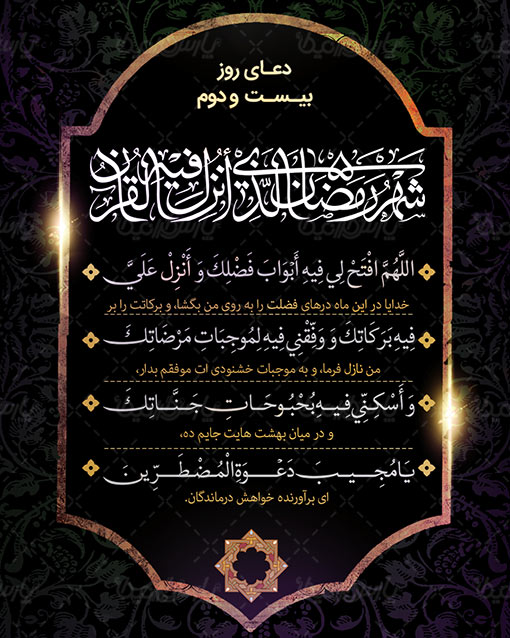 دعای روز
بیست و دوم
شهر رمضان الذي أنزل فيه القرآن
اللَّهُمَّ افْتَحْ لِي فِيهِ أَبْوَابَ فَضْلِكَ وَ أَنْزِلْ عَلَيَّ
خدایا در این ماه درهای فضلت را به روی من بگشا، و برکاتت را بر
فِيهِ بَرَكَاتِكَ وَ وَفِّقْنِي فِيهِ لِمُوجِبَاتِ مَرْضَاتِكَ
من نازل فرما، و به موجبات خشنودی ات موفقم بدار،
وَ أَسْكِنِّي فِيهِ بُحْبُوحَاتِ جَنَّاتِكَ
و در میان بهشت هایت جایم ده،
يَا مُجِيبَ دَعْوَةِ الْمُضْطَرِّينَ
ای برآورنده خواهش درماندگان.